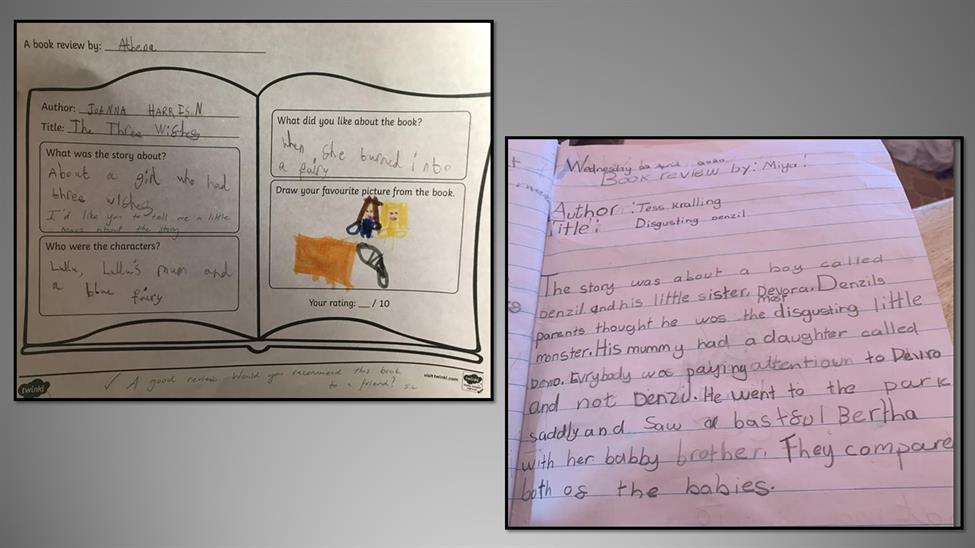 A book review by: Athena
Author: JOANNA HARRISN
Title: The Three Wishes
What was the story about?
About a girl who had
three wishes
I'd like you to tell me a little
more about the story
Who were the characters?
Lulu, Lulu's mum and
a blue fairy
What did you like about the book?
When she burned into
a fairy
Draw your favourite picture from the book.
Your rating: __ / 10
✓ A good review. Would you recommend this book
to a friend?
visit twinkl.com
twinkl
twinkl
Wednesday
Book review by: Miya!
Author : Tess Kralling
Title: Disgusting Denzil
The story was about a boy called
Denzil and his little sister, Devora. Denzils
most
parents thought he was the disgusting little
monster. His mummy had a daughter called
Devo. Evrybody was paying attentiown to Deviro
and not Denzil. He went to the park
saddly and saw a bastful Bertha
with her babby brother. They compare
both of the babies.